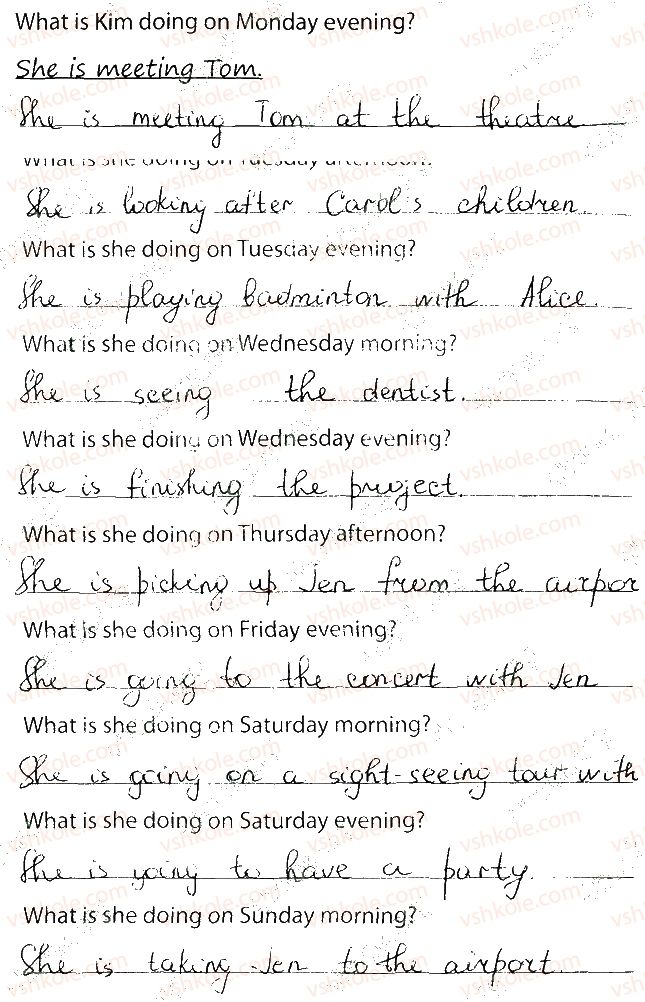 What is Kim doing on Monday evening?
She is meeting Tom.
She is meeting Tom at the theatre
What is she doing on Tuesday afternoon?
She is looking after Carol's children.
What is she doing on Tuesday evening?
She is playing badminton with Alice.
What is she doing on Wednesday morning?
She is seeing the dentist.
What is she doing on Wednesday evening?
She is finishing the project.
What is she doing on Thursday afternoon?
She is picking up Jen from the airpor
What is she doing on Friday evening?
She is going to the concert with Jen
What is she doing on Saturday morning?
She is going on a sight-seeing tour with
What is she doing on Saturday evening?
She is going to have a party.
What is she doing on Sunday morning?
She is taking Jen to the airport.
vshkole.com